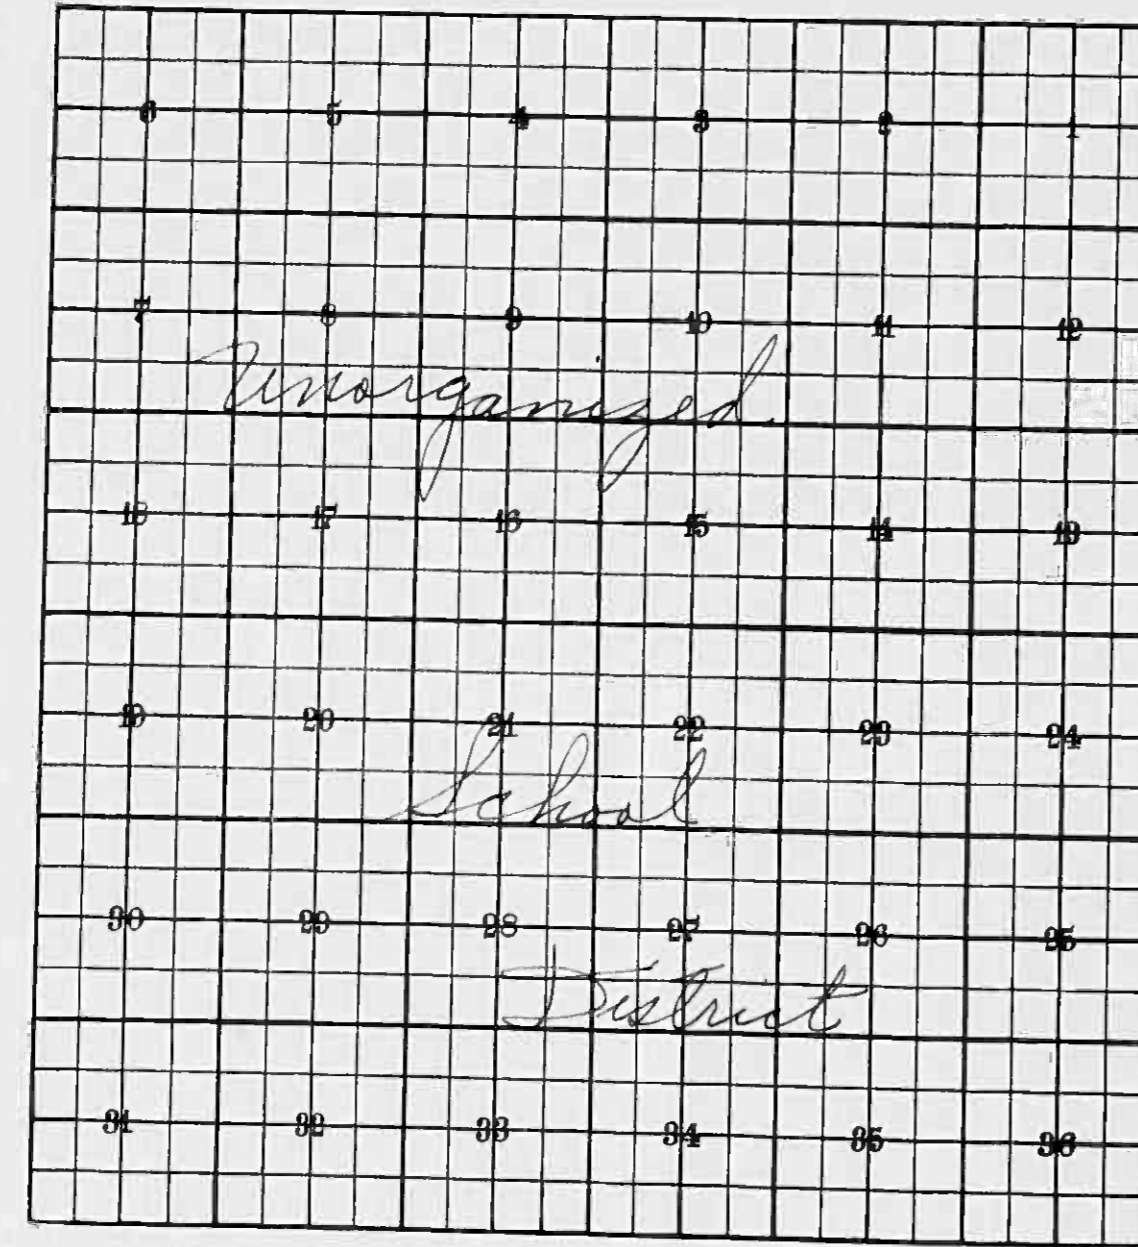 6 5 4 3 2 1
7 8 9 10 11 12
Unorganized
18 17 16 15 14 13
19 20 21 22 23 24
School
30 29 28 27 26 25
District
31 32 33 34 35 36